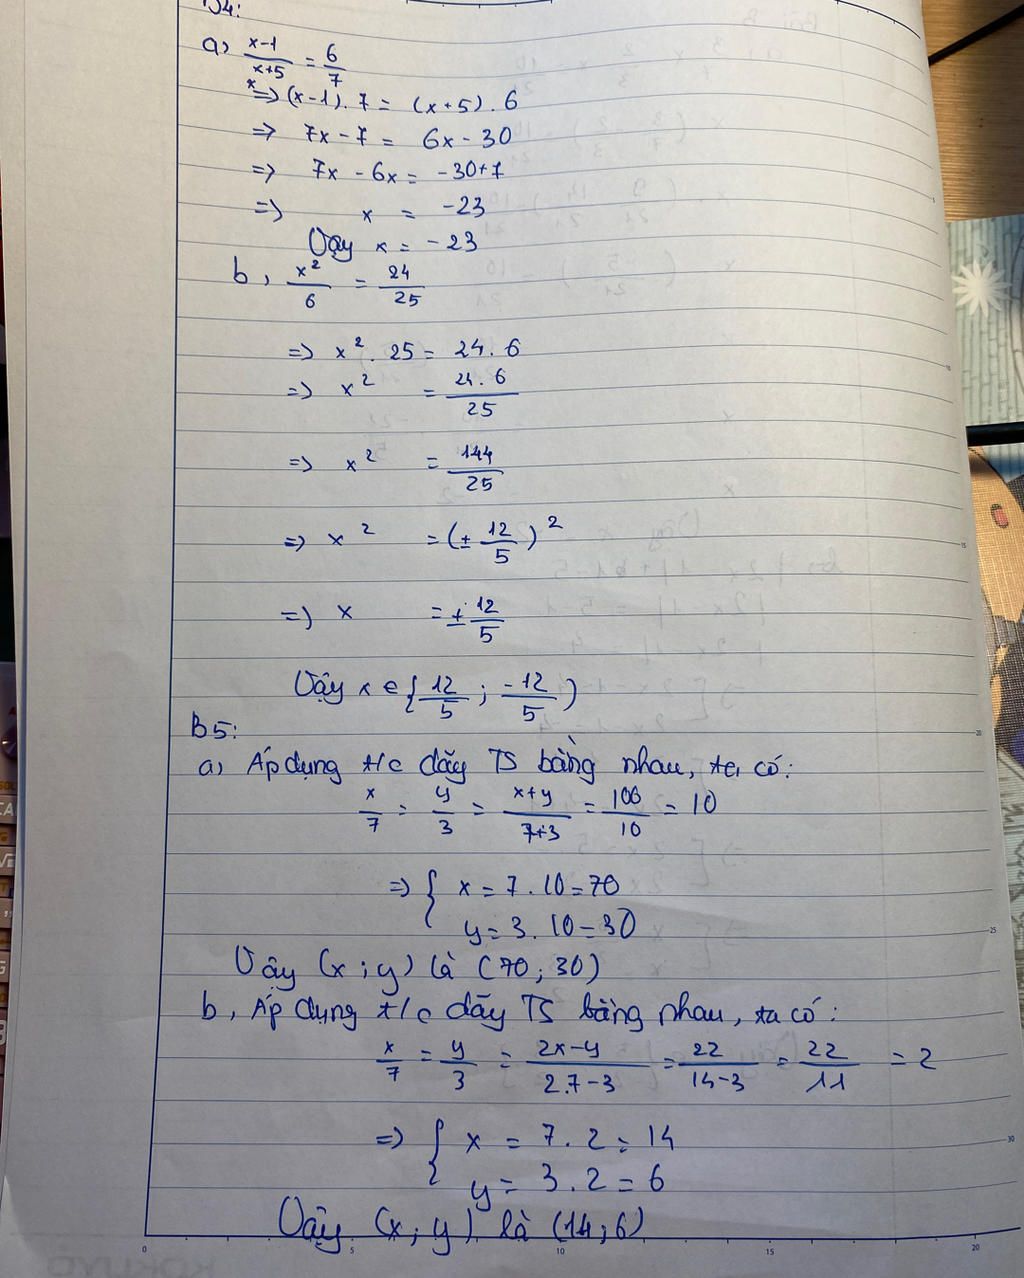 B4:
a) \frac{x-1}{x+5} = \frac{6}{7}
=> (x-1).7 = (x+5).6
=> 7x - 7 = 6x - 30
=> 7x - 6x = -30+7
=> x = -23
Vậy x = -23
b, \frac{x^2}{6} = \frac{24}{25}
=> x^2 . 25 = 24.6
=> x^2 = \frac{24.6}{25}
=> x^2 = \frac{144}{25}
=> x^2 = (± \frac{12}{5})^2
=> x = ± \frac{12}{5}
Vậy x ∈ {\frac{12}{5}; \frac{-12}{5})
B5:
a) Áp dụng t/c dãy TS bằng nhau, ta có:
\frac{x}{7} = \frac{y}{3} = \frac{x+y}{7+3} = \frac{100}{10} = 10
=> { x = 7.10 = 70
y = 3.10 = 30
Vậy (x;y) là (70;30)
b, Áp dụng t/c dãy TS bằng nhau, ta có:
\frac{x}{7} = \frac{y}{3} = \frac{2x-y}{2.7-3} = \frac{22}{14-3} = \frac{22}{11} = 2
=> { x = 7.2 = 14
y = 3.2 = 6
Vậy (x;y) là (14;6)
0 5 10 15 20